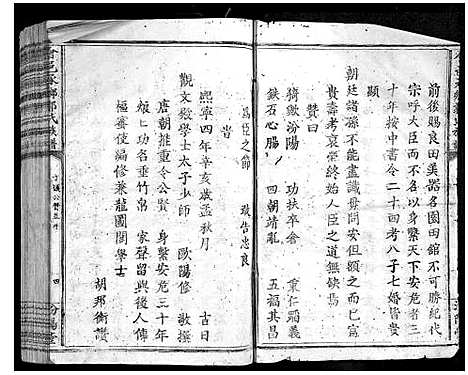 前後賜良田美器名園田館不可勝紀代
宗呼大臣而不名以身繫天下安危者二
十年按中書令二十四考八子七婿皆貴
顯
朝廷諸孫不能盡識毋問安但頷之而已
富貴壽考哀榮終始人臣之道無缺焉
贊曰
猗歟汾陽 功扶卒食 秉仁蹈義
鉄石心腸 四朝靖亂 五福其昌
爲臣之節 敢告忠良
旹
熙寧四年辛亥歲孟秋月 吉日
觀文殿學士太子少師 歐陽修 敬撰
唐朝推重令公賢 身繫安危三十年
功名垂竹帛 家聲留與後人傳
樞密使編修兼龍圖閣學士
胡邦衡讚
氏族譜
四